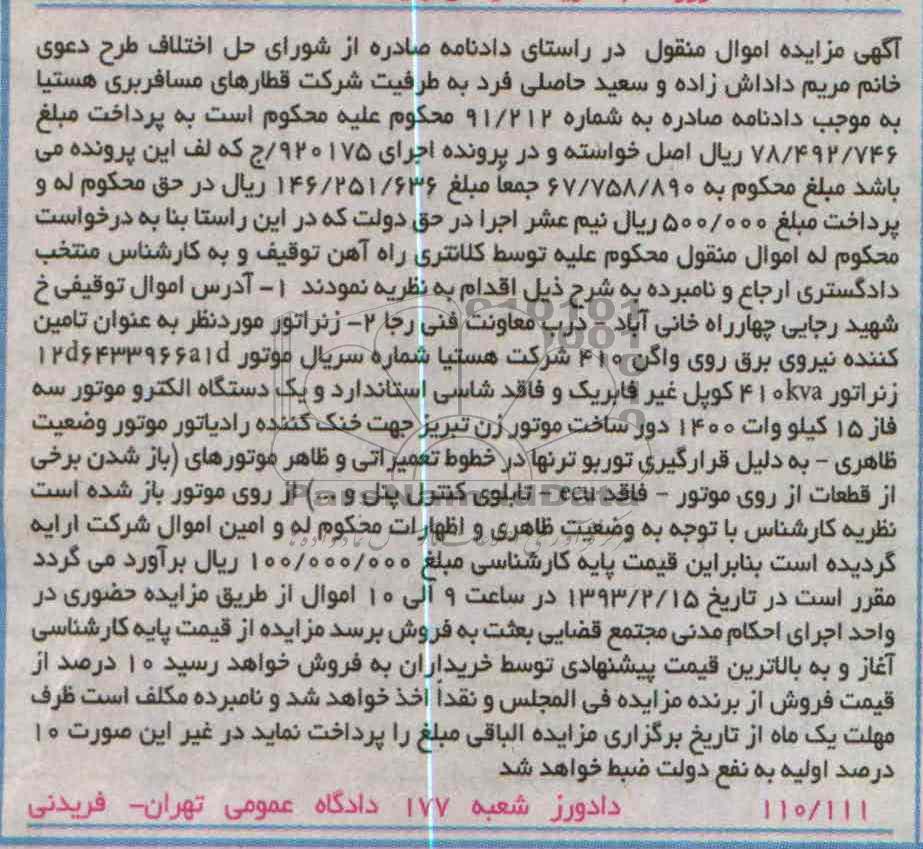 آگهی مزایده اموال منقول در راستای دادنامه صادره از شورای حل اختلاف طرح دعوی
خانم مریم داداش زاده و سعید حاصلی فرد به طرفیت شرکت قطارهای مسافربری هستیا
به موجب دادنامه صادره به شماره ۹۱/۲۱۲ محکوم علیه محکوم است به پرداخت مبلغ
۷۸/۴۹۲/۷۴۶ ریال اصل خواسته و در پرونده اجرای ۹۲۰۱۷۵/ج که لف این پرونده می
باشد مبلغ محکوم به ۶۷/۷۵۸/۸۹۰ جمعاً مبلغ ۱۴۶/۲۵۱/۶۳۶ ریال در حق محکوم له و
پرداخت مبلغ ۵۰۰/۰۰۰ ریال نیم عشر اجرا در حق دولت که در این راستا بنا به درخواست
محکوم له اموال منقول محکوم علیه توسط کلانتری راه آهن توقیف و به کارشناس منتخب
دادگستری ارجاع و نامبرده به شرح ذیل اقدام به نظریه نمودند ۱- آدرس اموال توقیفی خ
شهید رجایی چهارراه خانی آباد - درب معاونت فنی رجا ۲- زنراتور موردنظر به عنوان تامین
کننده نیروی برق روی واگن ۴۱۰ شرکت هستیا شماره سریال موتور ۱۲d۶۴۳۳۹۶۶a۱d
زنراتور ۴۱۰kva کوپل غیر فابریک و فاقد شاسی استاندارد و یک دستگاه الکترو موتور سه
فاز ۱۵ کیلو وات ۱۴۰۰ دور ساخت موتور ژن تبریز جهت خنک کننده رادیاتور موتور وضعیت
ظاهری - به دلیل قرارگیری توربو ترنها در خطوط تعمیراتی و ظاهر موتورهای (باز شدن برخی
از قطعات از روی موتور - فاقد ecu - تابلوی کنترل پنل و ...) از روی موتور باز شده است
نظریه کارشناس با توجه به وضعیت ظاهری و اظهارات محکوم له و امین اموال شرکت ارایه
گردیده است بنابراین قیمت پایه کارشناسی مبلغ ۱۰۰/۰۰۰/۰۰۰ ریال برآورد می گردد
مقرر است در تاریخ ۱۳۹۳/۲/۱۵ در ساعت ۹ الی ۱۰ اموال از طریق مزایده حضوری در
واحد اجرای احکام مدنی مجتمع قضایی بعثت به فروش برسد مزایده از قیمت پایه کارشناسی
آغاز و به بالاترین قیمت پیشنهادی توسط خریداران به فروش خواهد رسید ۱۰ درصد از
قیمت فروش از برنده مزایده فی المجلس و نقداً اخذ خواهد شد و نامبرده مکلف است ظرف
مهلت یک ماه از تاریخ برگزاری مزایده الباقی مبلغ را پرداخت نماید در غیر این صورت ۱۰
درصد اولیه به نفع دولت ضبط خواهد شد
۱۱۰/۱۱۱ دادورز شعبه ۱۷۷ دادگاه عمومی تهران- فریدنی